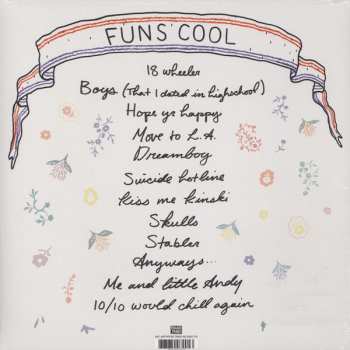 FUNS'COOL
18 wheeler
Boys (That I dated in highschool)
Hope yr happy
Move to L.A.
Dreamboy
Suicide hotline
Kiss me Kinski
Skulls
Stabler
Anyways...
Me and little Andy
10/10 would chill again